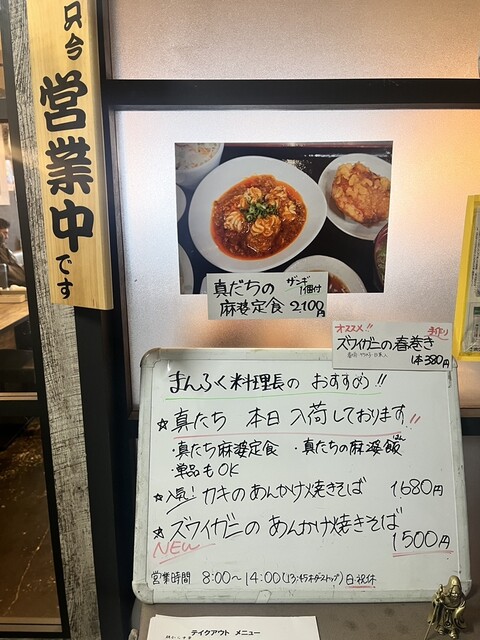 只今
営業中
です
真だちの ザンギ1個付
麻婆定食 2,100円
オススメ!! 手作り
ズワイガニの春巻き
1本380円
まんふく料理長の おすすめ!!
☆真たち 本日 入荷しております!!
・真たち麻婆定食 ・真たちの麻婆飯
・単品もOK
☆人気! カキのあんかけ焼きそば 1680円
☆ズワイガニの あんかけ焼きそば
NEW 1500円
営業時間 8:00〜14:00(13:45オーダーストップ) 日祝休
テイクアウト メニュー